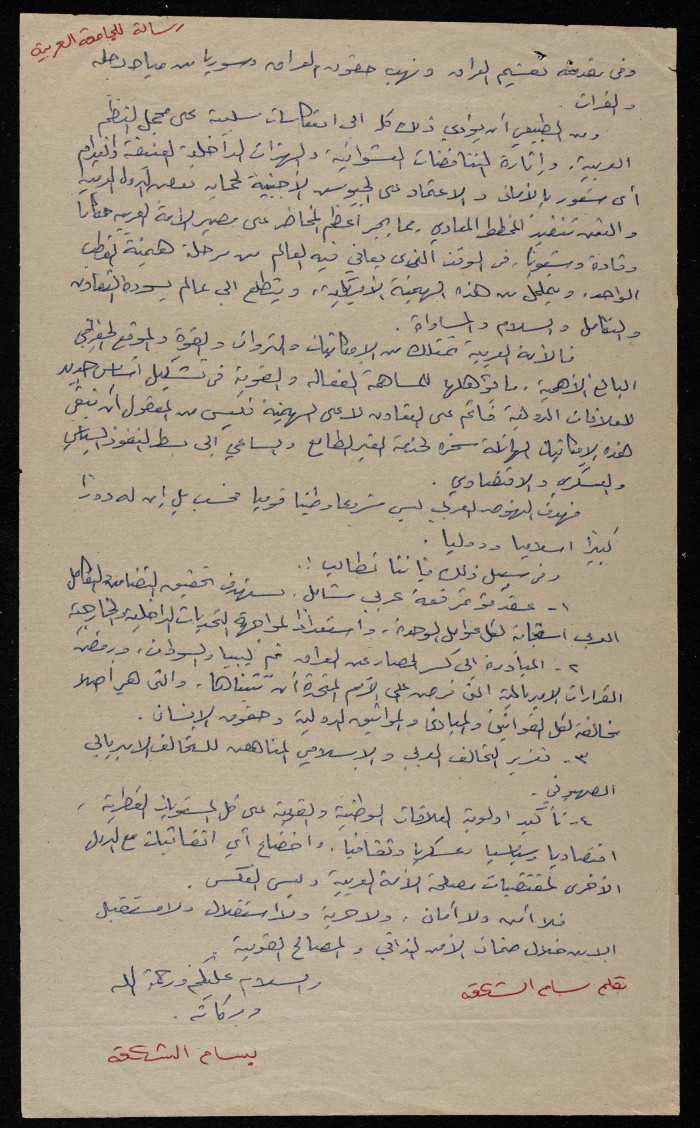 رسالة للجامعة العربية
وفي مقدمته تقسيم العراق ونهب حقوق العراق وسوريا من مياه دجلة
والفرات.
ومن الطبيعي أن يؤدي ذلك كله الى انعكاسات سلبية على مجمل النظم
العربية، وإثارة التناقضات العشوائية والهزات الداخلية العنيفة وانعدام
أي شعور بالأمان والاعتماد على الجيوش الأجنبية لحماية بعض الدول العربية
تنفيذ المخطط المعادي، مما يجر أعظم المخاطر على مصير الأمة العربية حكاما
وقادة وشعوبا، في الوقت الذي يعاني فيه العالم من مرحلة هيمنة القطب
الواحد، ويتململ من هذه الهيمنة الأمريكية، ويتطلع الى عالم يسوده التعاون
والتكامل والسلام والمساواة.
فالأمة العربية تمتلك من الإمكانيات والثروات والقوة والموقع الجغرافي
البالغ الأهمية، ما يؤهلها للمساهمة الفعالة والقوية في تشكيل أساس جديد
للعلاقات الدولية قائم على التعاون لا على الهيمنة فليس من المعقول أن تبقى
هذه الإمكانيات الهائلة مسخرة لخدمة الغير الطامع والساعي الى بسط النفوذ السياسي
والعسكري والاقتصادي.
فهدف النهوض العربي ليس مشروعا وطنيا قوميا فحسب بل إن له دورا
كبيرا اسلاميا ودوليا.
وفي سبيل ذلك فإننا نطالب:
١- عقد مؤتمر قمة عربي شامل، يستهدف تحقيق التضامن والتكامل
العربي استجابة لكل عوامل الوحدة، واستعدادا لمواجهة التحديات الداخلية والخارجية
٢- المبادرة الى كسر الحصار عن العراق ثم ليبيا والسودان، ورفض
القرارات الامبريالية التي فرض على الأمم المتحدة أن تتبناها، والتي هي أصلا
مخالفة لكل القوانين والمبادئ والمواثيق الدولية وحقوق الإنسان.
٣- تعزيز التحالف العربي والإسلامي المناهض للتحالف الامبريالي
الصهيوني.
٤- تأكيد اولوية العلاقات الوطنية والقومية على كل المستويات القطرية،
اقتصاديا وسياسيا وعسكريا وثقافيا، واخضاع أي اتفاقيات مع الدول
الأخرى لمقتضيات مصلحة الأمة العربية وليس العكس.
فلا أمن ولا أمان، ولا حرية ولا استقلال ولا مستقبل
الا من خلال ضمان الأمن الذاتي والمصالح القومية.
والسلام عليكم ورحمة الله
وبركاته.
بقلم بسام الشكعة
بسام الشكعة